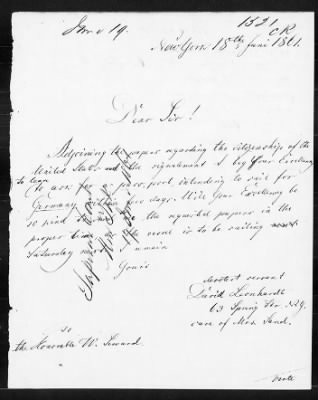 June 19.
1521
CR
New York 18th Juni 1861.
Dear Sir!
Adjoining the paper regarding the citizenship of the
United States and the signalement I beg Your Excellency
to leave
to ask for a passport, intending to sail for
Germany within few days. Will Your Excellency be
so kind to the requested papers in the
proper time is to be sailing
Saturday next. I remain
Yours
devotest servant
David Leonhardt
63 Spring Str. N.Y.
care of Mrs. Sand.
so
the Honorable W. Seward.
verte